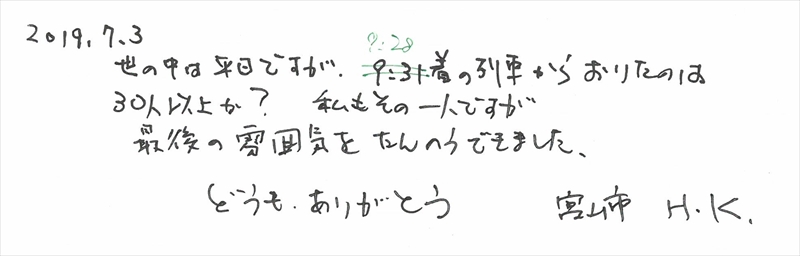 2019.7.3
9:28
世の中は平日ですが、9:31着の列車からおりたのは
30人以上か? 私もその一人ですが
最後の雰囲気をたんのうできました、
どうも、ありがとう 宮山市 H.K.